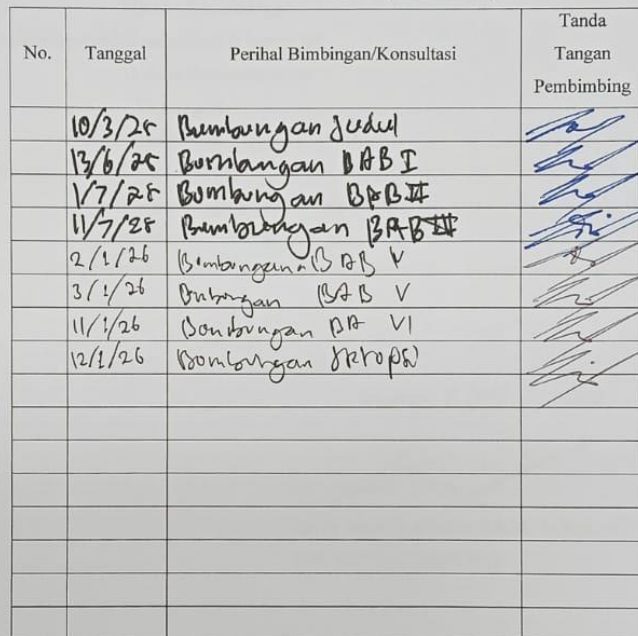 No. Tanggal Perihal Bimbingan/Konsultasi Tanda Tangan Pembimbing
10/3/25 Bimbingan Judul
13/6/25 Bimbingan BAB I
1/7/25 Bimbingan BAB II
11/7/25 Bimbingan BAB III
2/1/26 Bimbingan BAB V
3/1/26 Bimbingan BAB V
11/1/26 Bimbingan BA VI
12/1/26 Bimbingan skripsi